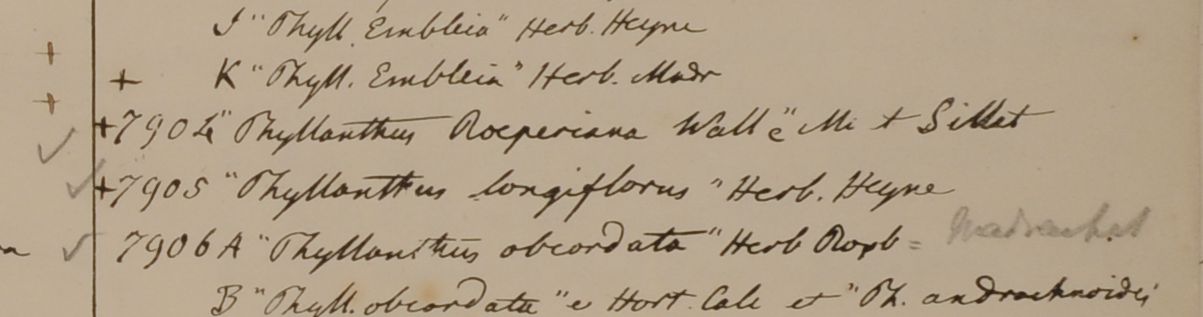 J "Phyll. Emblica" Herb. Heyne
+ K "Phyll. Emblica" Herb. Madr
+ 7904 "Phyllanthus Roeperiana Wall" e Mt Sillet
+ 7905 "Phyllanthus longiflorus" Herb. Heyne
7906 A "Phyllanthus obcordata" Herb Roxb =
B "Phyll. obcordata" e Hort. Calc et "Ph. andrachnoides